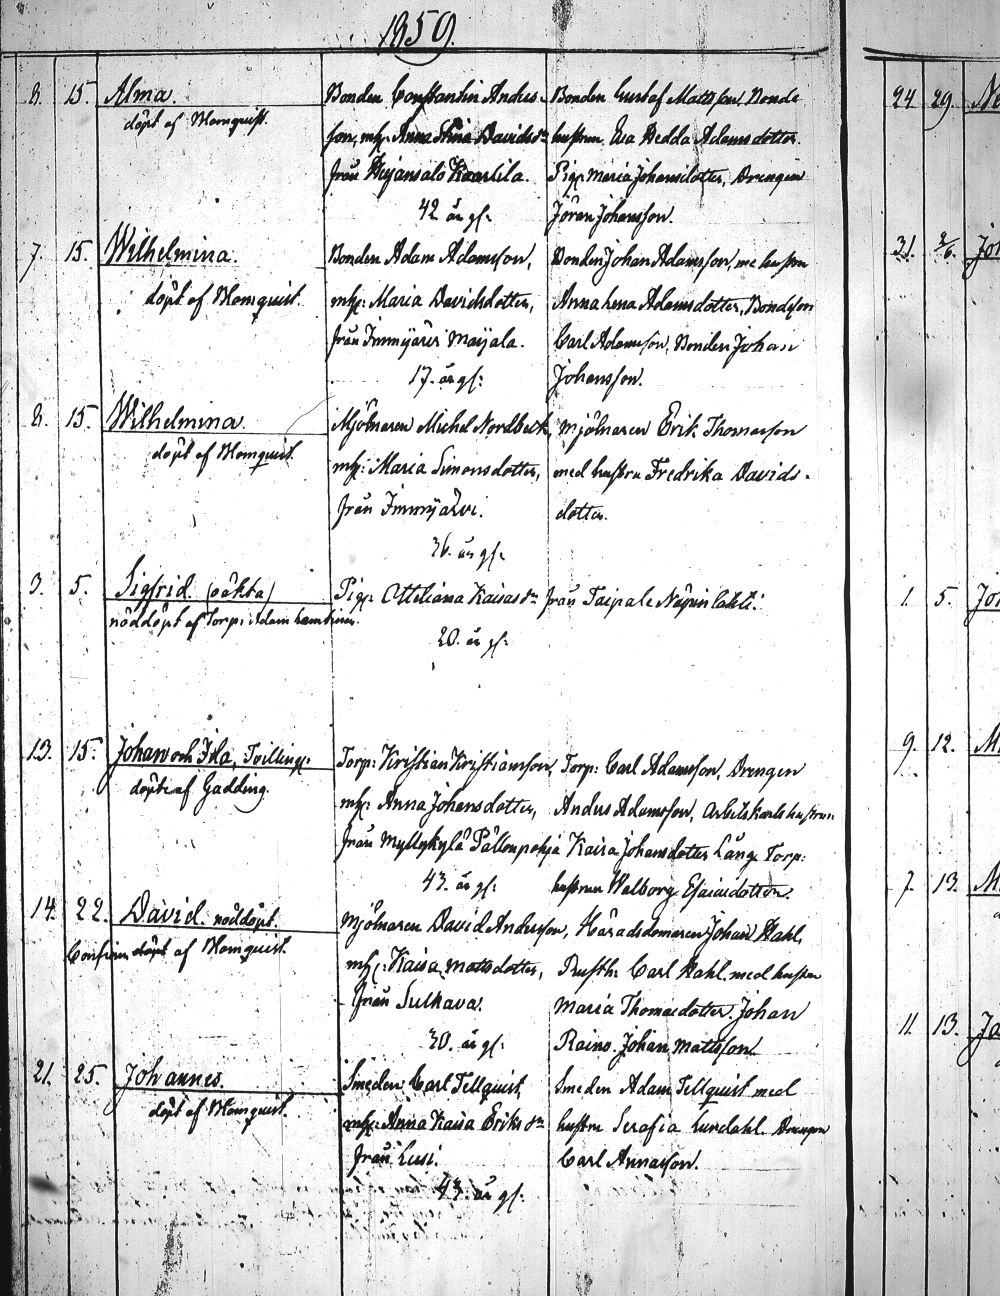 1859.
8. 15. Alma. Bonden Constantin Anders- Bonden Gustaf Mattsson, Bonde
döpt af Blomquist. son, mh: Anna Stina Davidsdr hustrun Eva Hedda Adamsdotter.
från Kaartila. Pig: Maria Johansdotter, Drengen
42 år gl: Jöran Johansson.
7. 15. Wilhelmina. Bonden Adam Adamsson, Bonden Johan Adamsson, me hustru
döpt af Blomquist. mh: Maria Davidsdotter, Anna Lena Adamsdotter, Bondson
från Immijärvi Maijala. Carl Adamsson, Bonden Johan
17. år gl: Johansson.
8. 15. Wilhelmina. Mjölnaren Michel Nordbeck, Mjölnaren Erik Thomasson
döpt af Blomquist. mh: Maria Simonsdotter, med hustru Fredrika Davids-
från Immijärvi. dotter.
36. år gl:
3. 5. Sigfrid (oäkta) Pig: Ottiliana Kaisasdr från Taipale Näpinlahti.
nöddöpt af Torp: Adam
20. år gl:
13. 15. Johan och Ida, Tvilling: Torp: Kristian Kristiansson, Torp: Carl Adamsson, Drengen
döpte af Gadding. mh: Anna Johansdotter, Anders Adamsson, Arbetskarls hustrun
från Myllykylä Pällönpohja Kaisa Johansdotter Lång, Torp:
43. år gl: hustrun Walborg Esaiasdotter.
14. 22. David. nöddöpt. Mjölnaren David Andersson, Häradsdomaren Johan Dahl,
Confirm döpt af Blomquist. mh: Kaisa Mattsdotter, Rusth: Carl Dahl med hustru
från Sulkava. Maria Thomasdotter. Johan
30. år gl: Raino. Johan Mattsson.
21. 25. Johannes. Smeden Carl Tellquist, Smeden Adam Tellquist med
döpt af Blomquist. mh: Anna Kaisa Eriksdr hustru Serafia Lundahl. Drengen
från Lusi. Carl Annasson.
43. år gl:
24 29.
31. 2/6.
1. 5.
9. 12.
7. 13.
11. 13.